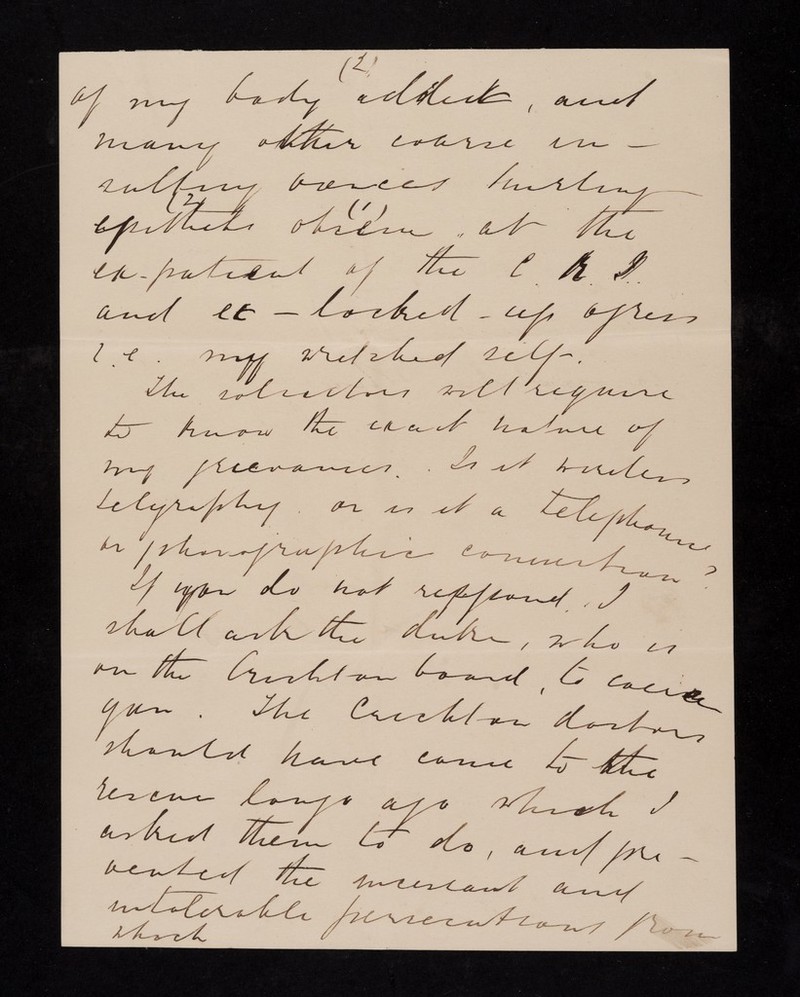 (2)
of my body addict, and
many other coarse in-
sulting voices hurling
(2) (1)
epithets obscene at the
ex-patient of the C. R. I.
and ex-locked-up
i.e. my wretched self.
The solicitors will require
to know the exact nature of
my grievances. Is it wireless
telegraphy or is it a telephonic
or phonographic connection?
If you do not respond, I
shall ask the duke, who is
on the Crichton board, to coerce
you. The Crichton doctors
should have come to the
rescue long ago which I
asked them to do, and pre-
vented the incessant and
intolerable persecutions from
which